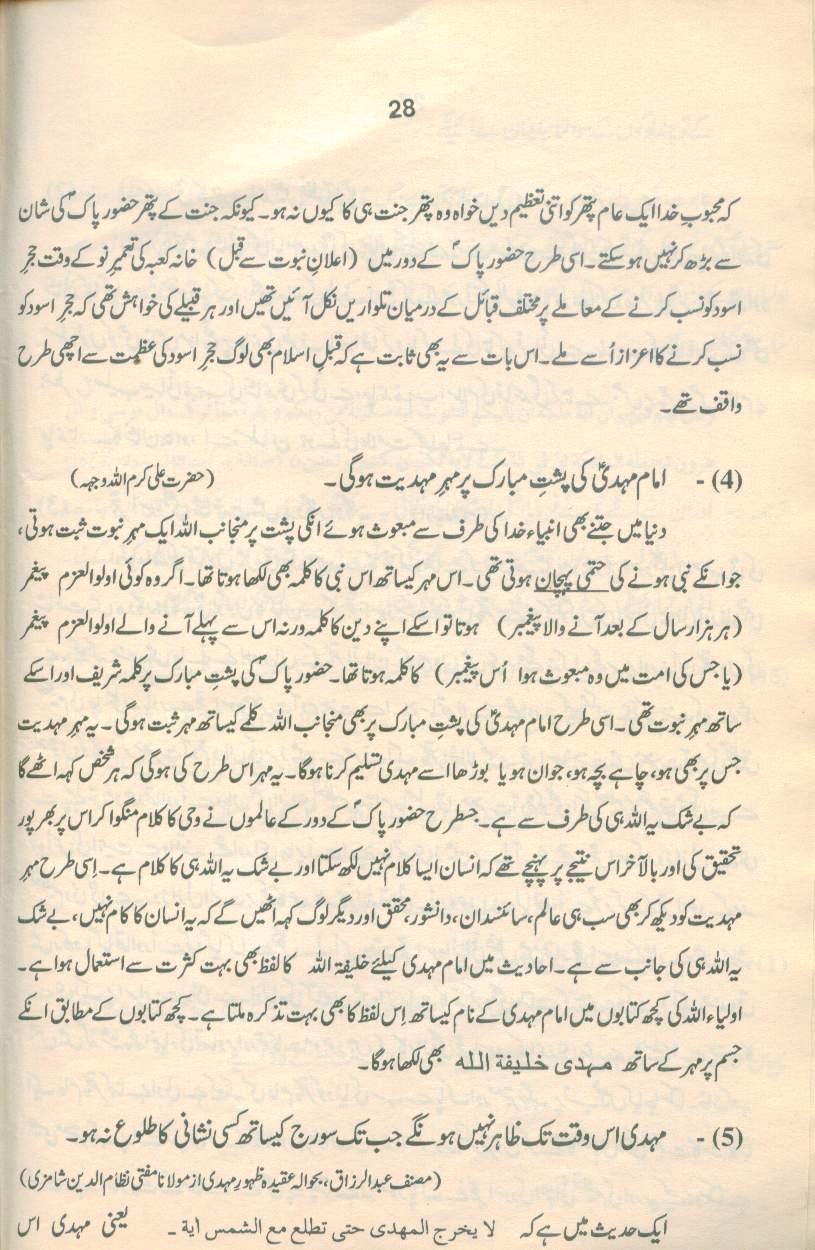 28
کہ محبوبِ خدا ایک عام پتھر کو اتنی تعظیم دیں خواہ وہ پتھر جنت ہی کا کیوں نہ ہو۔ کیونکہ جنت کے پتھر حضور پاکؐ کی شان
سے بڑھ کر نہیں ہو سکتے۔ اسی طرح حضور پاکؐ کے دور میں (اعلانِ نبوت سے قبل) خانہ کعبہ کی تعمیرِ نو کے وقت حجرِ
اسود کو نسب کرنے کے معاملے پر مختلف قبائل کے درمیان تلواریں نکل آئیں تھیں اور ہر قبیلے کی خواہش تھی کہ حجرِ اسود کو
نسب کرنے کا اعزاز اُسے ملے۔ اس بات سے یہ بھی ثابت ہے کہ قبلِ اسلام بھی لوگ حجرِ اسود کی عظمت سے اچھی طرح
واقف تھے۔
(4) - امام مہدیؑ کی پشتِ مبارک پر مہرِ مہدیت ہوگی۔ (حضرت علی کرم اللہ وجہہ)
دنیا میں جتنے بھی انبیاء خدا کی طرف سے مبعوث ہوئے انکی پشت پر منجانب اللہ ایک مہرِ نبوت ثبت ہوتی،
جو انکے نبی ہونے کی حتمی پہچان ہوتی تھی۔ اس مہر کیساتھ اس نبی کا کلمہ بھی لکھا ہوتا تھا۔ اگر وہ کوئی اولوالعزم پیغمبر
(ہر ہزار سال کے بعد آنے والا پیغمبر) ہوتا تو اسکے اپنے دین کا کلمہ ورنہ اس سے پہلے آنے والے اولوالعزم پیغمبر
(یا جس کی امت میں وہ مبعوث ہوا اُس پیغمبر) کا کلمہ ہوتا تھا۔ حضور پاکؐ کی پشتِ مبارک پر کلمہ شریف اور اسکے
ساتھ مہرِ نبوت تھی۔ اسی طرح امام مہدیؑ کی پشتِ مبارک پر بھی منجانب اللہ کلمے کیساتھ مہر ثبت ہوگی۔ یہ مہرِ مہدیت
جس پر بھی ہو، چاہے بچہ ہو، جوان ہو یا بوڑھا اسے مہدی تسلیم کرنا ہوگا۔ یہ مہر اس طرح کی ہوگی کہ ہر شخص کہہ اٹھے گا
کہ بے شک یہ اللہ ہی کی طرف سے ہے۔ جسطرح حضور پاکؐ کے دور کے عالموں نے وحی کا کلام منگوا کر اس پر بھرپور
تحقیق کی اور بالآخر اس نتیجے پر پہنچے تھے کہ انسان ایسا کلام نہیں لکھ سکتا اور بے شک یہ اللہ ہی کا کلام ہے۔ اِسی طرح مہرِ
مہدیت کو دیکھ کر بھی سب ہی عالم، سائنسدان، دانشور، محقق اور دیگر لوگ کہہ اٹھیں گے کہ یہ انسان کا کام نہیں، بے شک
یہ اللہ ہی کی جانب سے ہے۔ احادیث میں امام مہدی کیلئے خلیفۃ اللہ کا لفظ بھی بہت کثرت سے استعمال ہوا ہے۔
اولیاء اللہ کی کچھ کتابوں میں امام مہدی کے نام کیساتھ اِس لفظ کا بھی بہت تذکرہ ملتا ہے۔ کچھ کتابوں کے مطابق انکے
جسم پر مہر کے ساتھ مہدی خلیفة الله بھی لکھا ہوگا۔
(5) - مہدی اس وقت تک ظاہر نہیں ہونگے جب تک سورج کیساتھ کسی نشانی کا طلوع نہ ہو۔
(مصنف عبدالرزاق، بحوالہ عقیدہ ظہورِ مہدی از مولانا مفتی نظام الدین شامزی)
ایک حدیث میں ہے کہ لا يخرج المهدى حتى تطلع مع الشمس اية ۔ یعنی مہدی اس